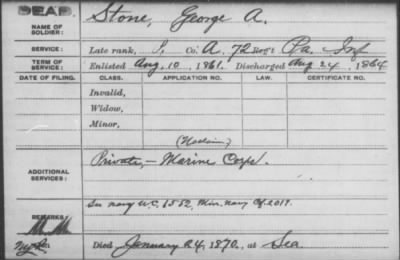 DEAD.
NAME OF SOLDIER: Stone, George A.
SERVICE: Late rank, P, Co. A, 72 Reg't Pa. Inf
TERM OF SERVICE: Enlisted Aug. 10, 1861. Discharged Aug 24, 1864
DATE OF FILING. CLASS. APPLICATION NO. LAW. CERTIFICATE NO.
Invalid,
Widow,
Minor,
(No claim)
ADDITIONAL SERVICES: Private, - Marine Corps.
See navy W.C. 1552, Min. Navy Cf. 2019.
REMARKS: M.M.
Died January 24, 1870, at Sea